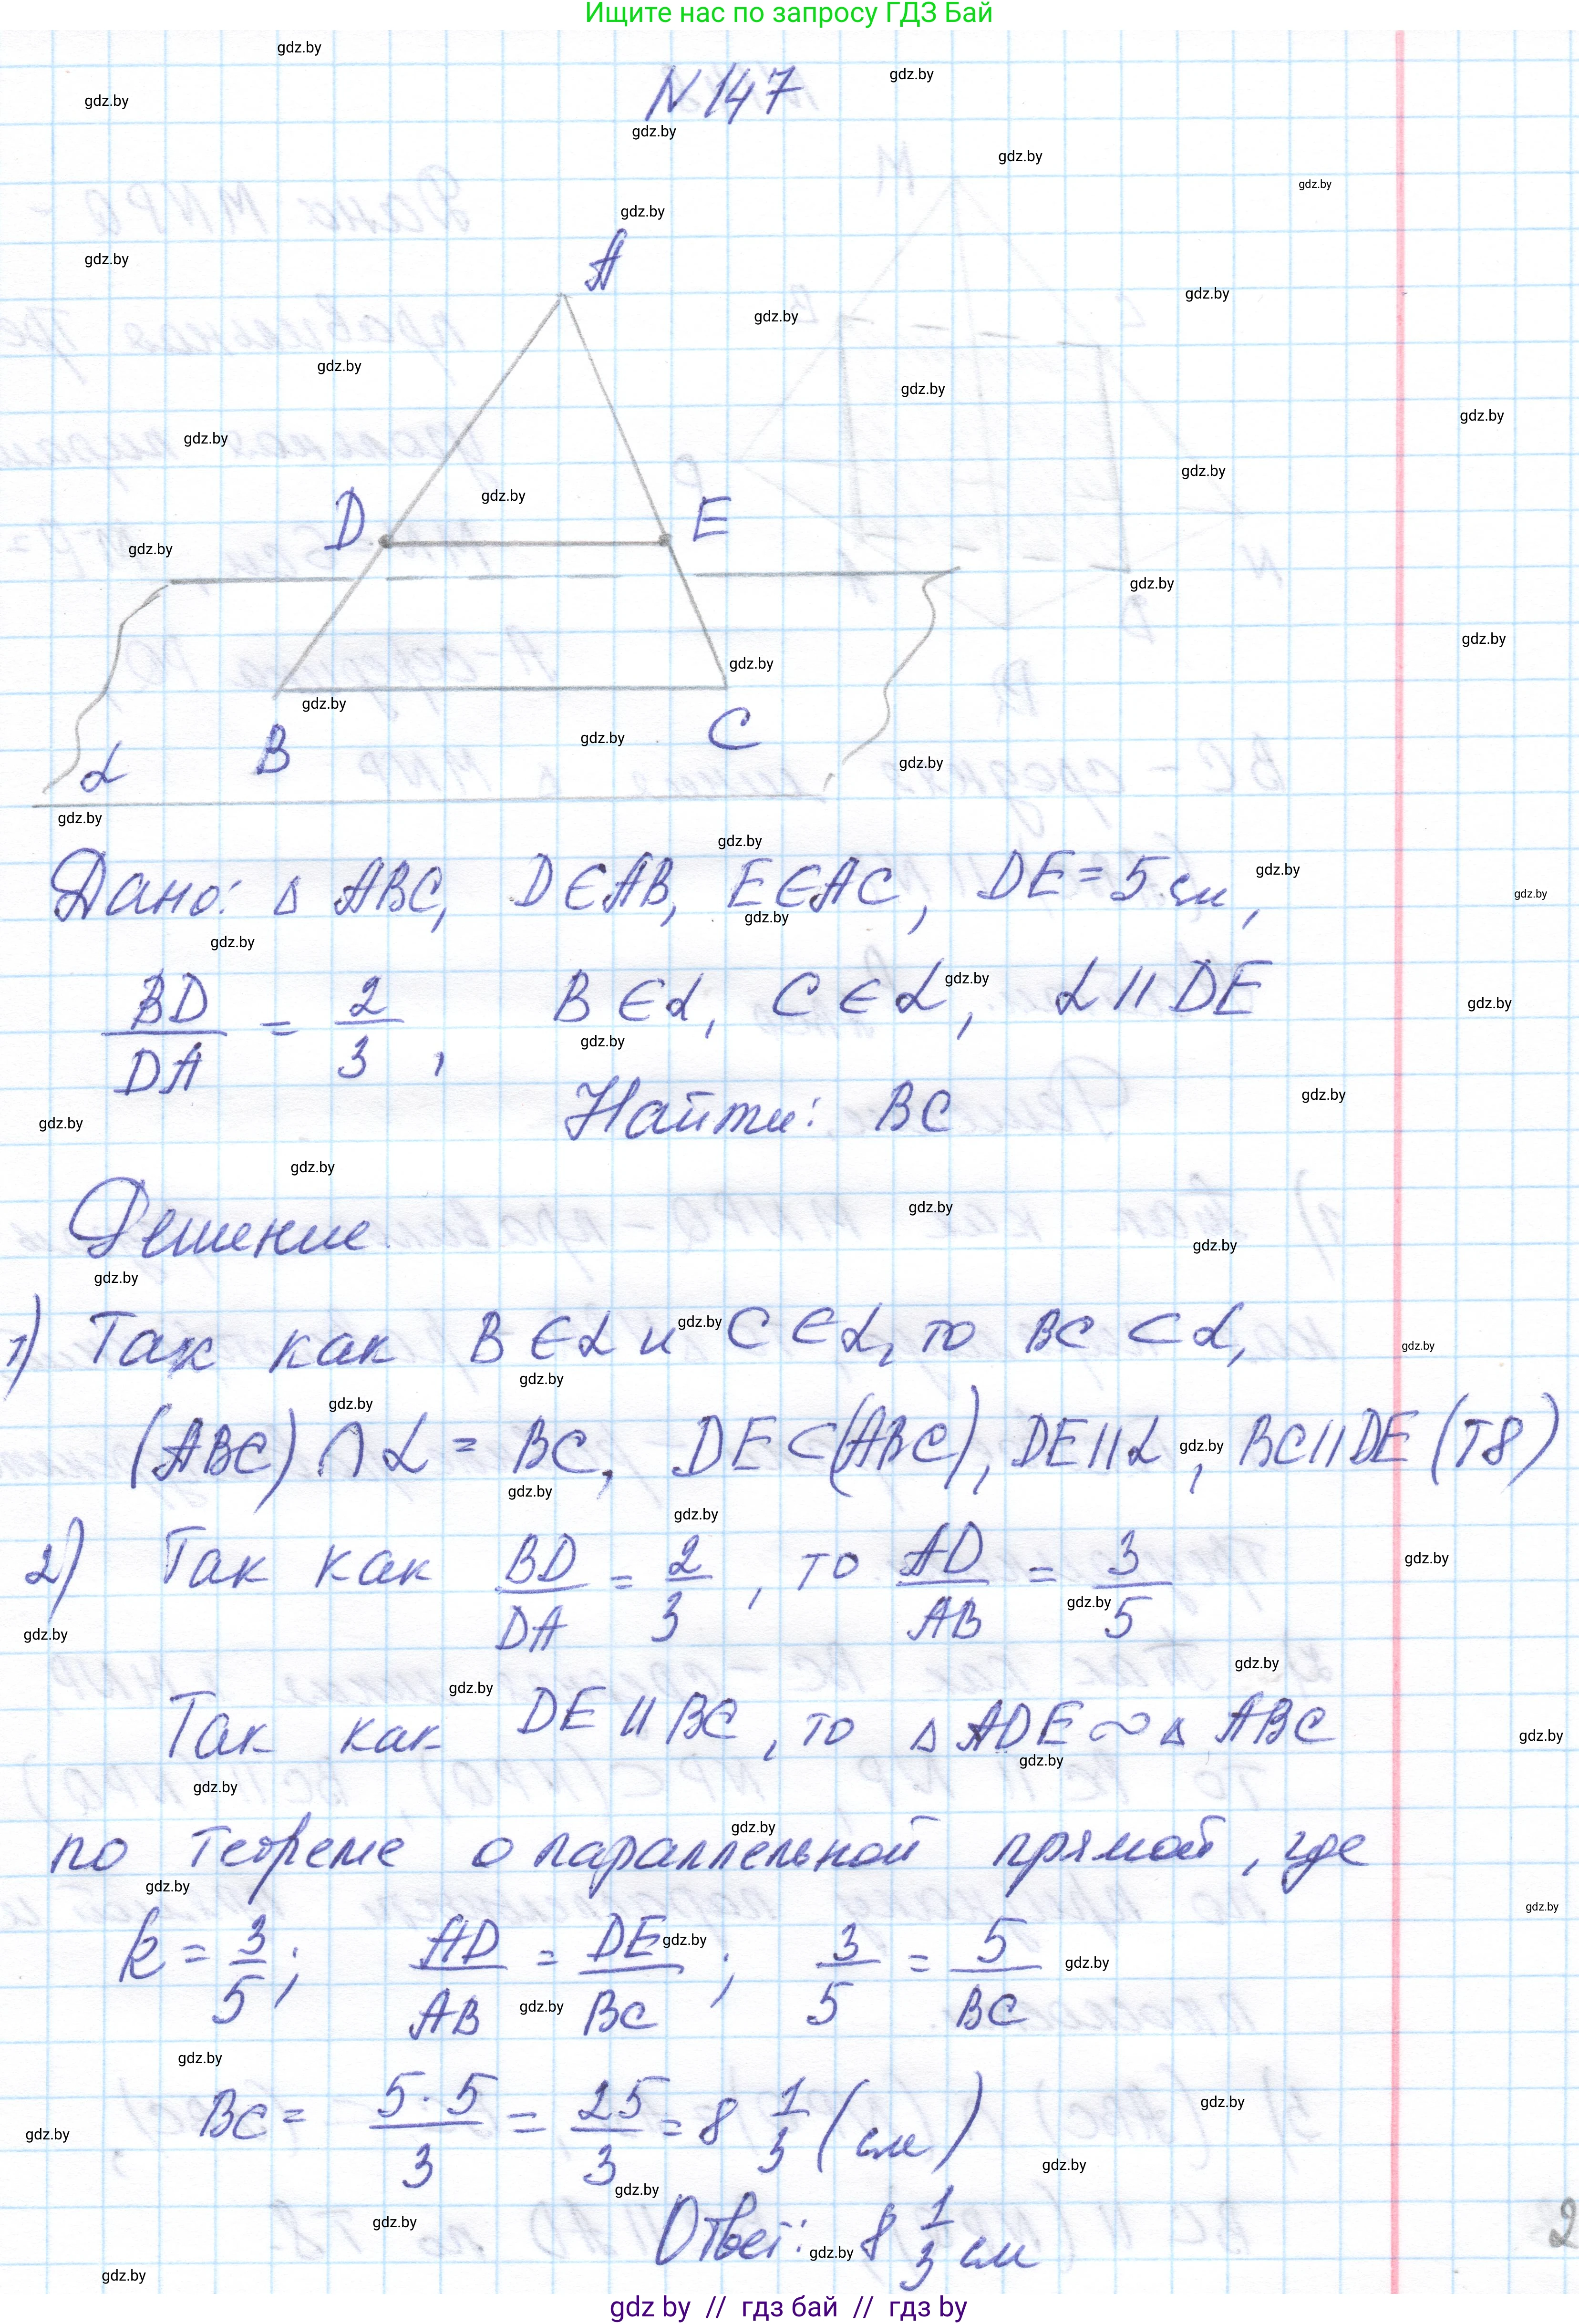 Ищите нас по запросу ГДЗ Бай
N 147
A
D
E
B
C
α
Дано: Δ ABC, D∈AB, E∈AC, DE = 5 см,
BD/DA = 2/3, B∈α, C∈α, α || DE
Найти: BC
Решение
1) Так как B∈α и C∈α, то BC ⊂ α,
(ABC) ∩ α = BC, DE ⊂ (ABC), DE || α, BC || DE (T8)
2) Так как BD/DA = 2/3, то AD/AB = 3/5
Так как DE || BC, то Δ ADE ~ Δ ABC
по теореме о параллельной прямой, где
k = 3/5; AD/AB = DE/BC; 3/5 = 5/BC
BC = 5·5/3 = 25/3 = 8 1/3 (см)
Ответ: 8 1/3 см
2
gdz by // гдз бай // гдз by